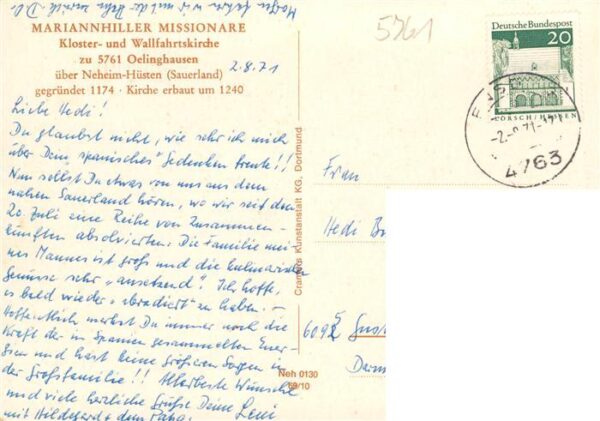 Morgen fahren wir mit der Bahn zurück.
MARIANNHILLER MISSIONARE
Kloster- und Wallfahrtskirche
zu 5761 Oelinghausen
über Neheim-Hüsten (Sauerland)
gegründet 1174 · Kirche erbaut um 1240
2.8.71
Liebe Hedi!
Du glaubst nicht, wie sehr ich mich
über Dein "spanisches" Gedenken freute!!
Nun sollst Du etwas von uns aus dem
nahen Sauerland hören, wo wir seit dem
20. Juli eine Reihe von Zusammen-
künften absolvierten. Die Familie mei-
nes Mannes ist groß und die kulinarischen
Genüsse sehr "ansetzend". Ich hoffe,
es bald wieder "abradiert" zu haben. —
Hoffentlich merkst Du immer noch die
Kraft der in Spanien gesammelten Ener-
gien und hast keine größeren Sorgen in
der Großfamilie!! Allerbeste Wünsche
und viele herzliche Grüße Deine Leni
mit Hildegard + dem Papa.
Cramers Kunstanstalt KG. Dortmund
Neh 0130
69/10
5761
Deutsche Bundespost
20
LORSCH/HESSEN
-2.-8.71-17
4763
Frau
Hedi
6092
Darm